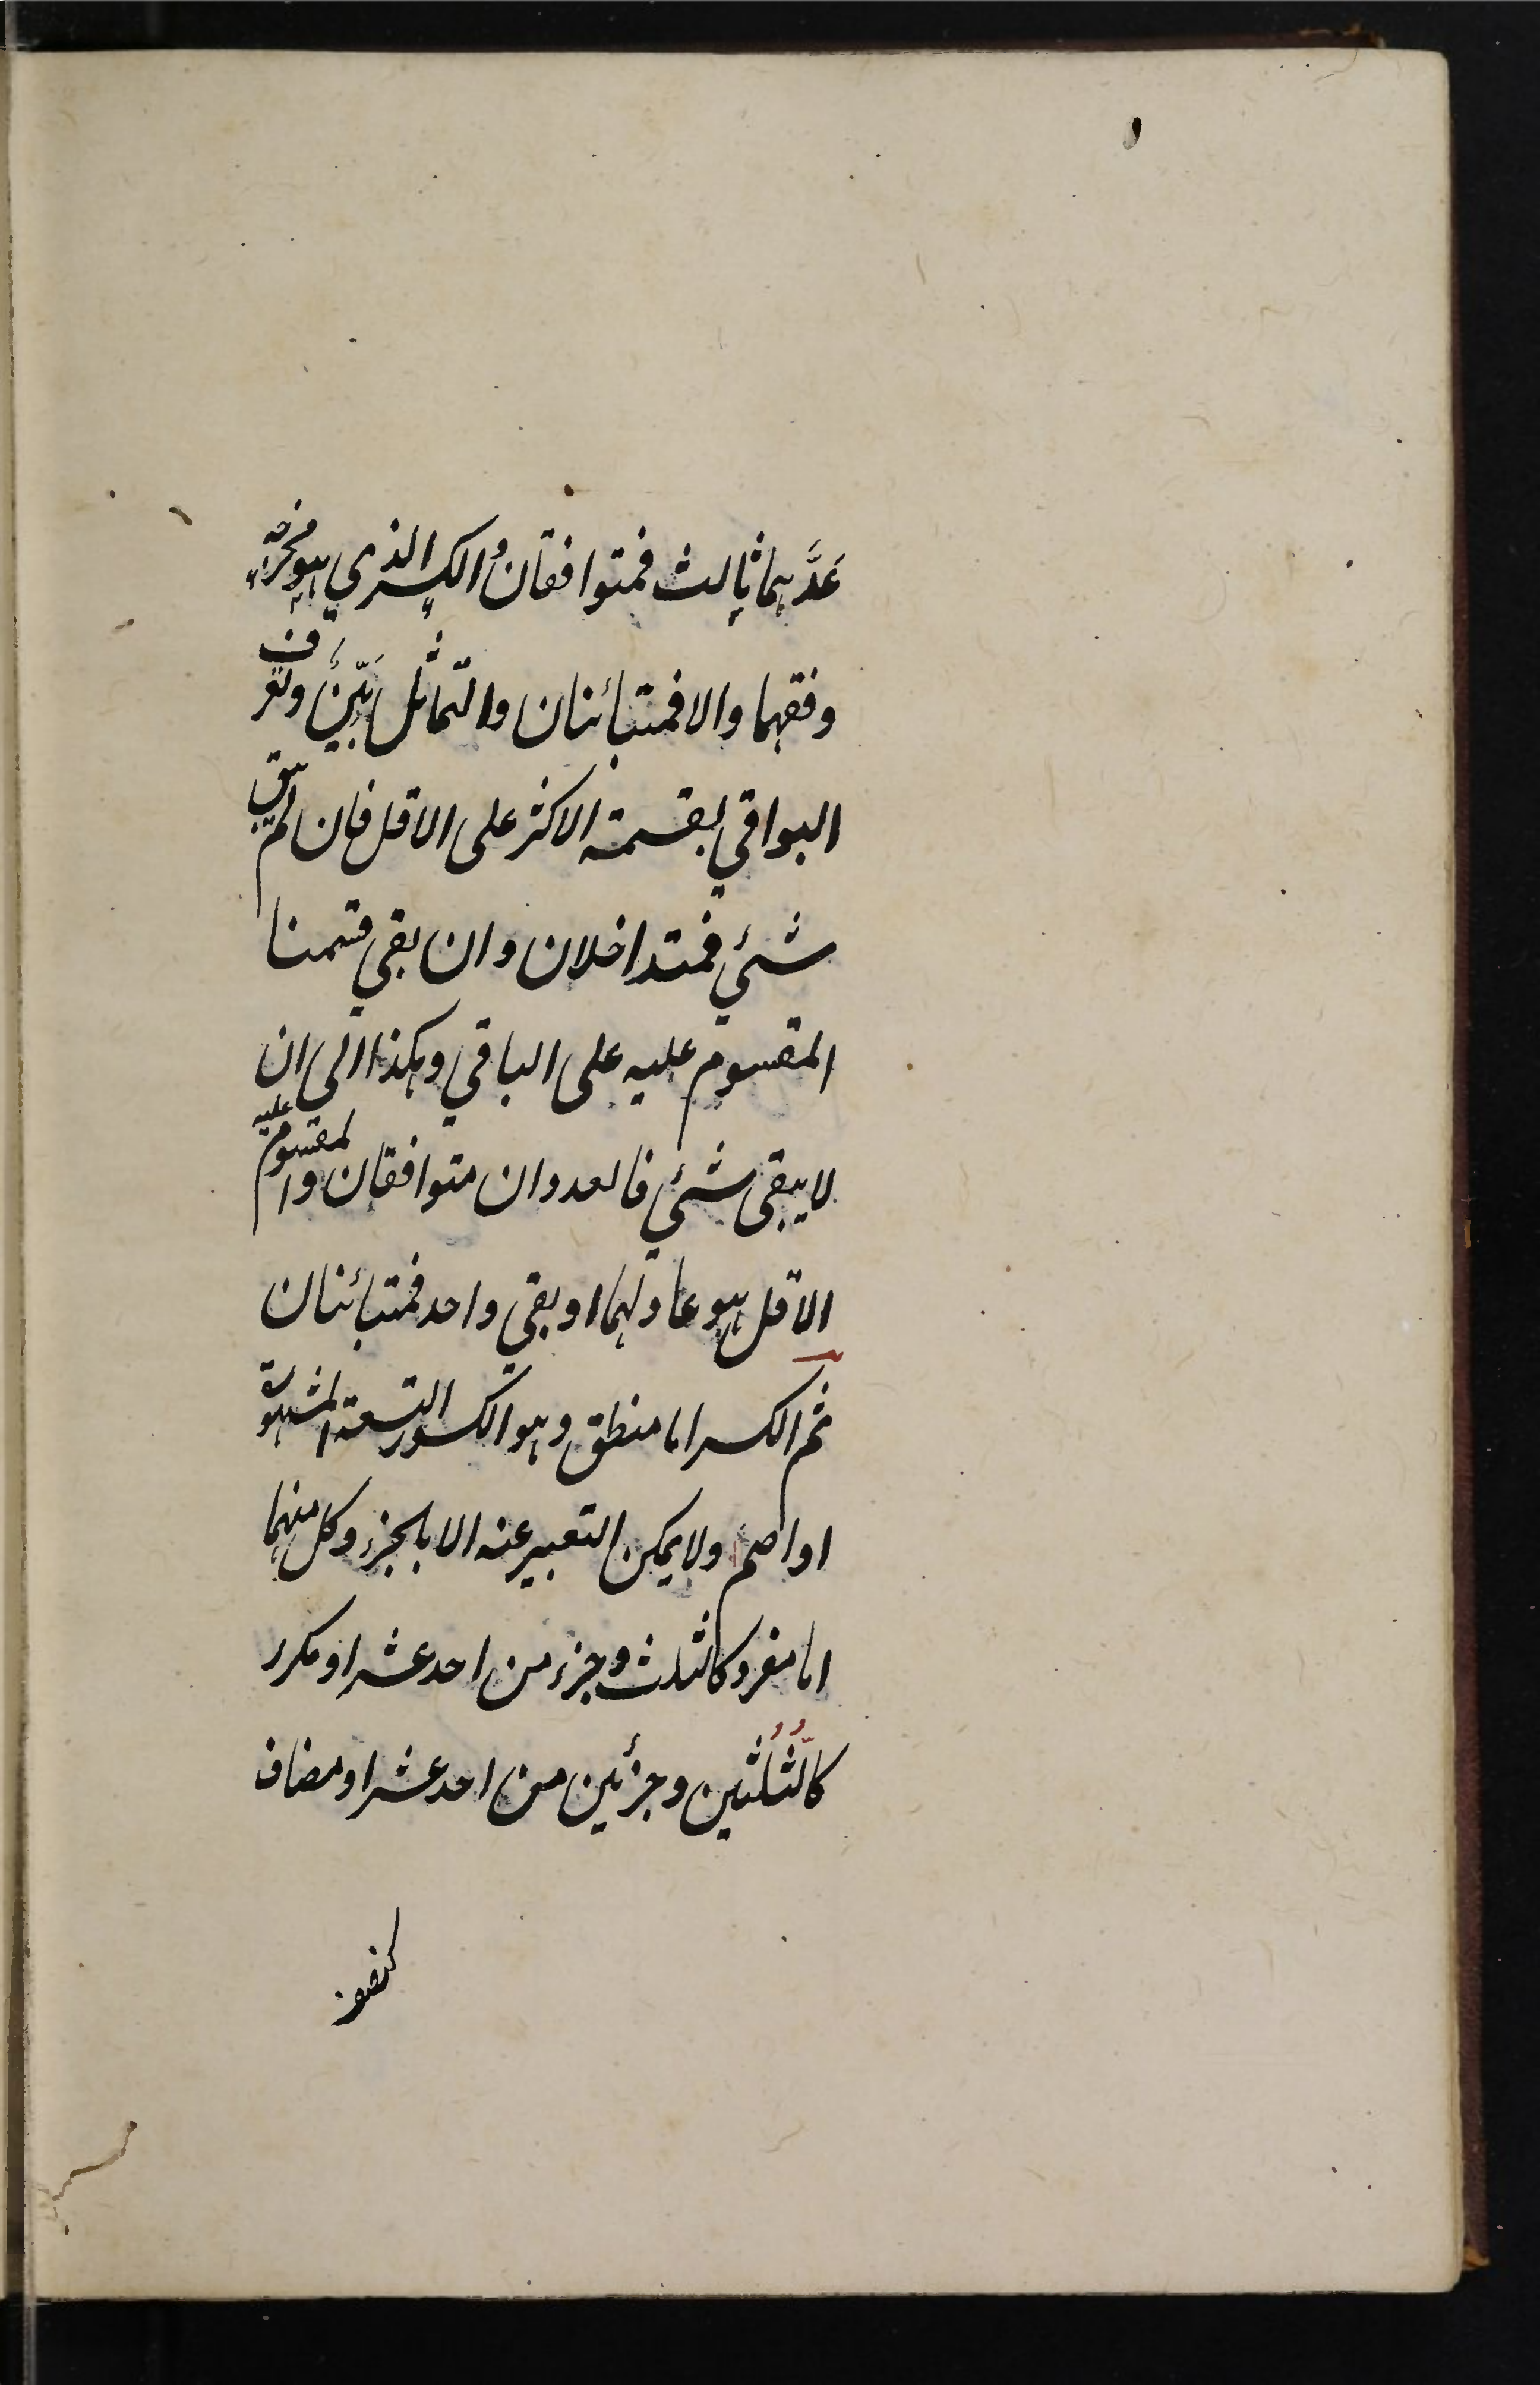 عَدَّهما ثالث فمتوافقان والكسر الذي هو مخرجه
وفقهما والا فمتبائنان والتماثل بَيِّنٌ وتعرف
البواقي بقسمة الاكثر على الاقل فان لم يبق
شئ فمتداخلان وان بقي قسمنا
المقسوم عليه على الباقي وهكذا الى ان
لا يبقى شئ فالعددان متوافقان والمقسوم عليه
الاقل هو عادلهما او بقي واحد فمتبائنان
ثم الكسر اما منطق وهو الكسور التسعة المشهورة
او اصم ولا يمكن التعبير عنه الا بالجزء وكل منهما
اما مفرد كالثلث وجزء من احد عشر او مكرر
كالثُّلُثين وجزئين من احد عشر او مضاف
كنصف